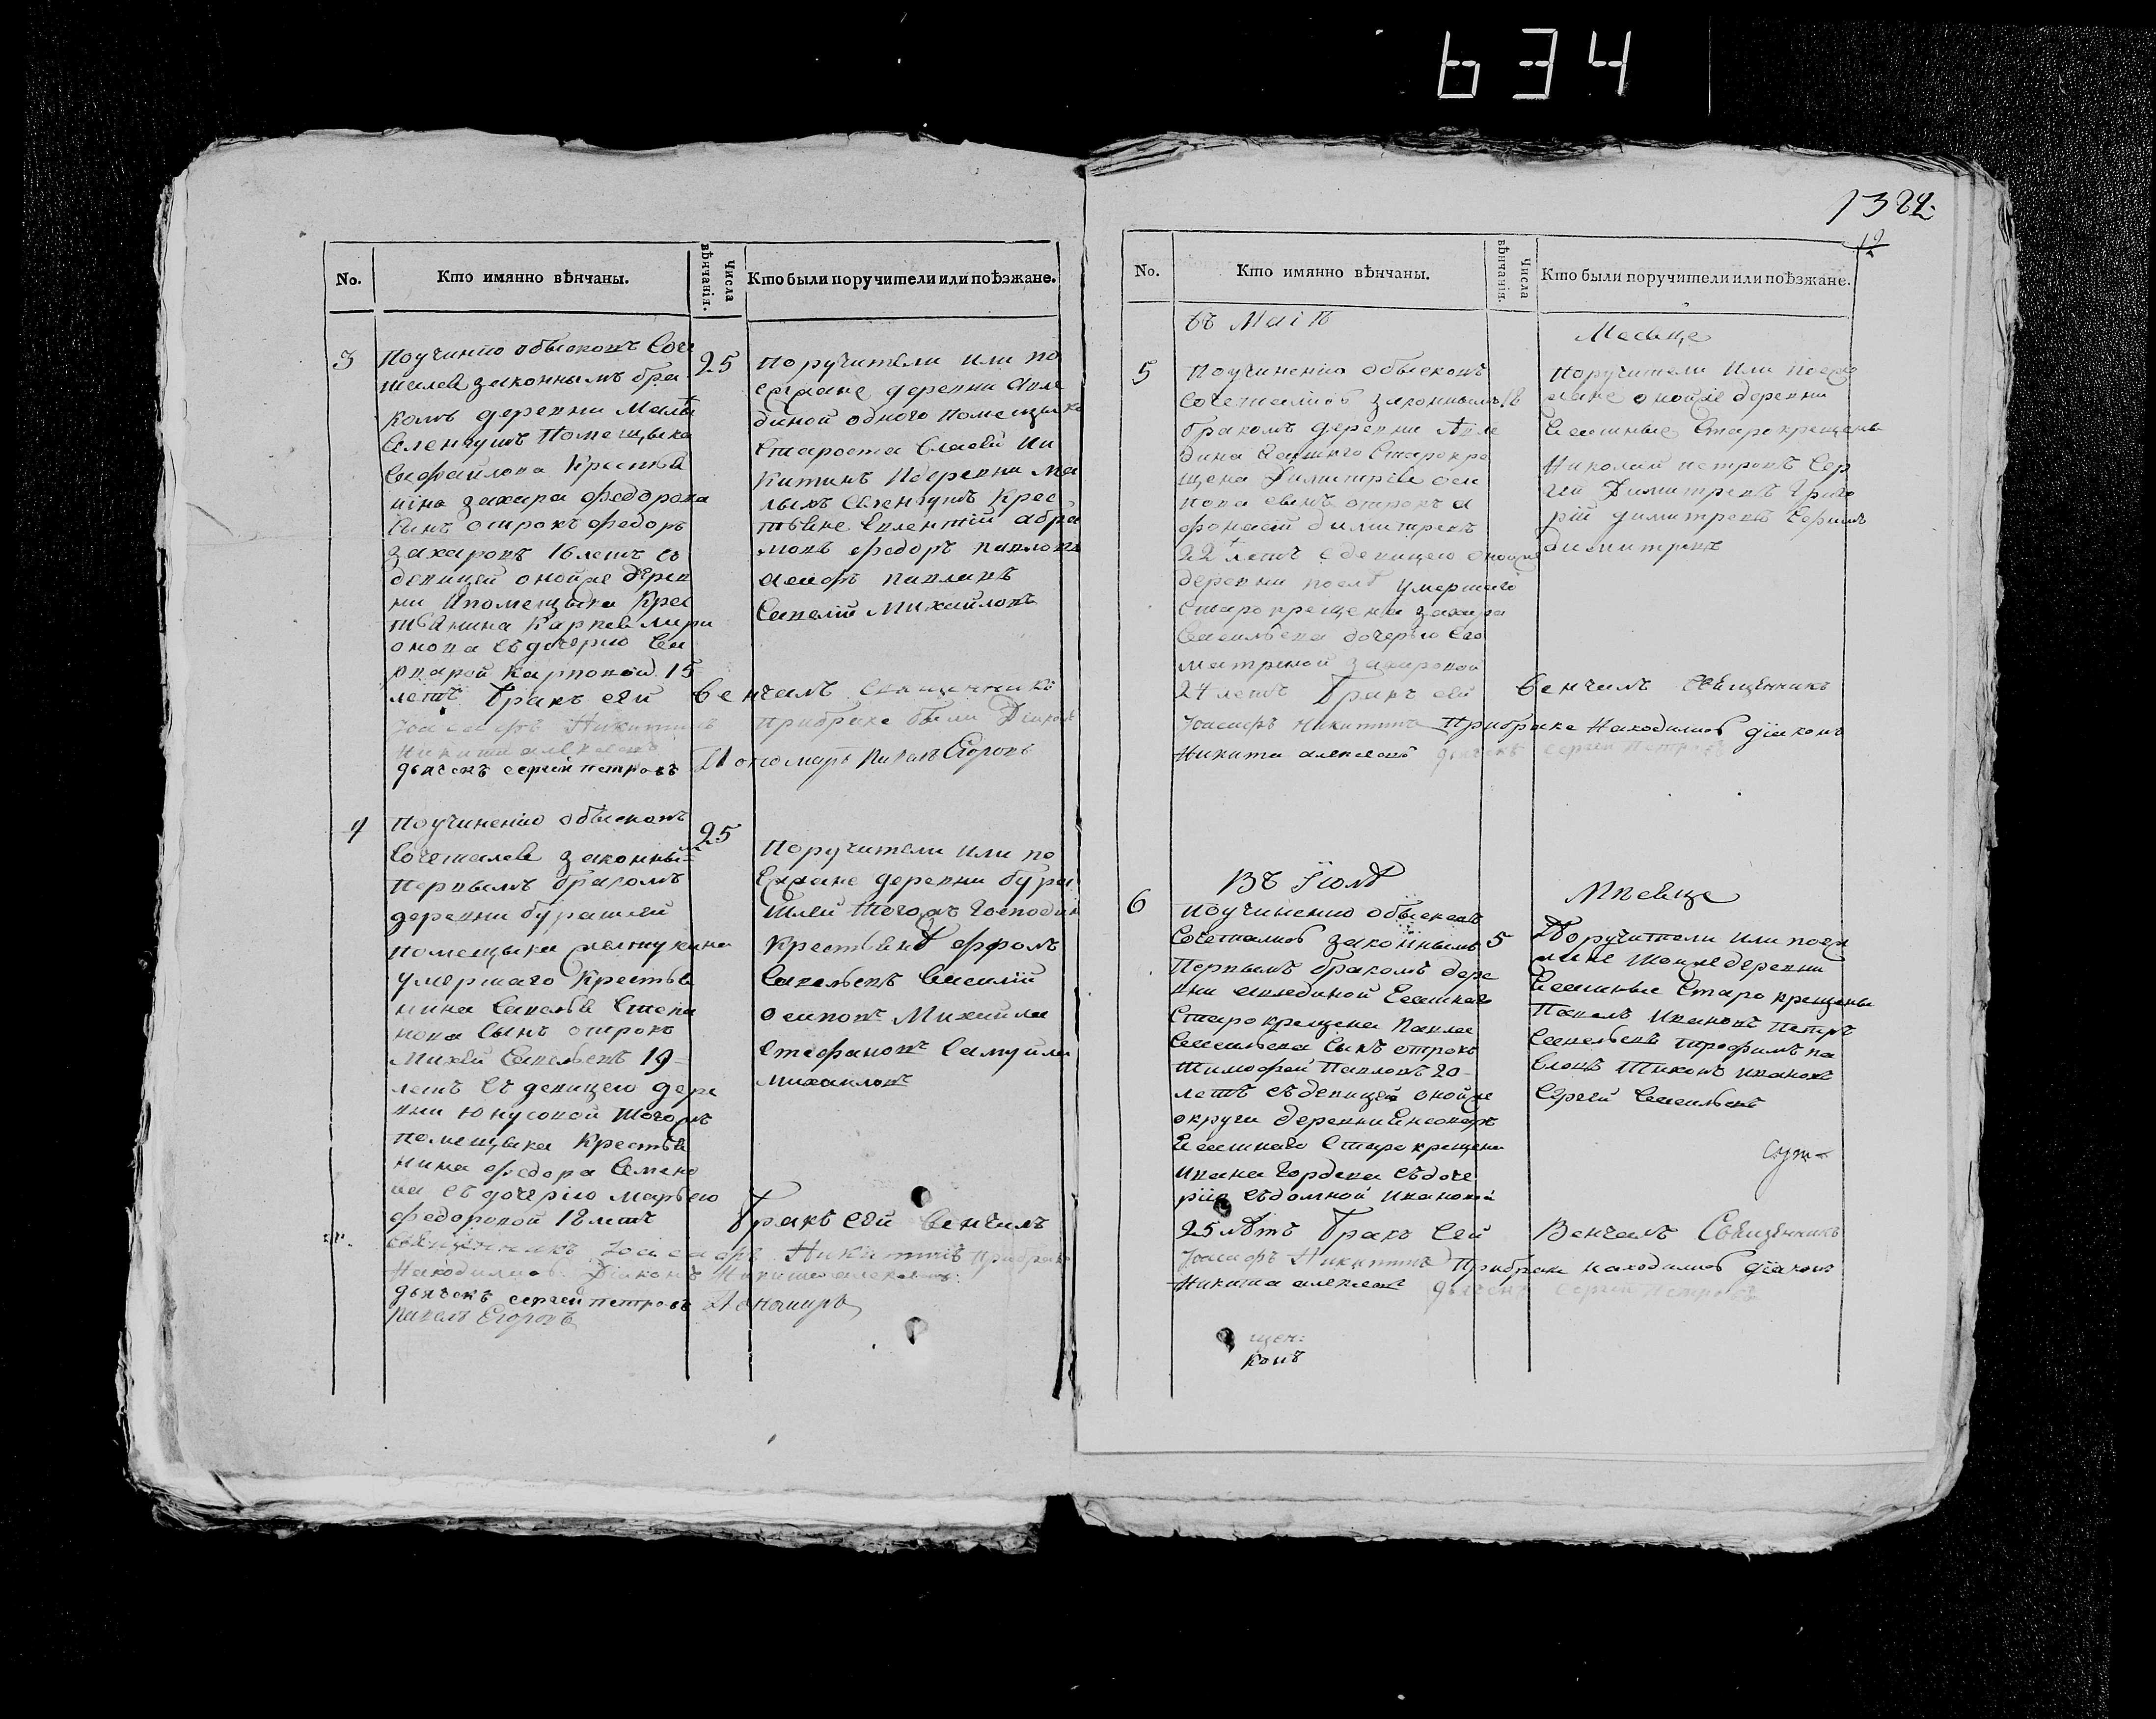 634
1384
12
No.
Кто имянно вѣнчаны.
Числа вѣнчанія.
Кто были поручители или поѣзжане.
3
Поучинію обыскомъ Соче
талсѧ законнымъ бра
комъ деревни Малы
Селенгушъ Помещыка
Крестьѧ
нина захара федорова
Сынъ отрокъ федоръ
захаровъ 16 летъ со
девицей онойже дерев
ни Ипомещыка Крес
тьѧнина
онова съдочерию
Карповой 15
летъ Бракъ сей венчалъ священникъ
Иоасафъ Никитинъ прибраке были Діаконъ
Никита алексеевъ
дьячекъ сергей петровъ Пономарь Павелъ Егоровъ
25
Поручители или по
езжане деревни Апле
диной одного помещыка
Староста Ни
китинъ Идеревни Ма
лыхъ Селенгушъ Крес
тьѧне абра
мовъ федоръ павловъ
павловъ
Савелій Михайловъ
4
Поучинению обыскомъ
Сочеталсѧ законны
первымъ бракомъ
деревни бурашлей
помещыка
умершаго Крестьѧ
нина Савельѧ Степа
нова Сынъ отрокъ
Михей Савельевъ 19
летъ Съ девицею дере
вни Юнусовой тогожъ
помещыка Крестьѧ
нина федора Семено
ва съ дочерію марьею
федоровой 18 летъ Бракъ сей венчалъ
священникъ Іоасафъ Никитинъ прибраке
Находились Діаконъ Никита алексеевъ
дьячекъ сергей петровъ Пономарь
Павелъ Егоровъ
25
Поручители или по
езжане деревни бура
шлей тогожъ Господина
Крестьѧнѣ
Савельевъ Василій
осиповъ Михайла
Стефановъ Самуйла
михаиловъ
No.
Кто имянно вѣнчаны.
Числа вѣнчанія.
Кто были поручители или поѣзжане.
въ Маіѣ Месеце
5
Поучинению обыскомъ
Сочетались законнымъ
бракомъ деревни Апле
дина Ясашнаго Старокре
щена Димитріѧ оси
пова сынъ отрокъ а
фонасей димитревъ
22 летъ с девицею онойже
деревни послѣ умершаго
Старокрещена захара
Васильева дочерью Его
матреной захаровой
24 летъ Бракъ сей венчалъ священникъ
Іоасафъ Никитинъ Прибраке Находились діаконъ
Никита алексеевъ дьячекъ сергей петровъ
18
Поручители Или поезжа
не онойже деревни
Ясашные Старокрещены
Николай петровъ Сер
гей Димитревъ Григо
рій димитревъ Ефимъ
димитревъ
Въ Іюлѣ Мѣсяце
6
Поучинению обыскомъ
Сочетались законнымъ
Первымъ бракомъ дере
вни аплединой Ясашнаго
Старокрещена Павла
Васильева Сынъ отрокъ
Тимофей Павловъ 20
летъ Съдевицей онойже
округи деревни
Ясашнаго Старокрещена
Ивана Гордева съдоче
рію съдомной ивановой
25 лѣтъ Бракъ Сей Венчалъ Свѧщенникъ
Іоасафъ Никитинъ Прибраке находились діаконъ
Никита алексеевъ дьячекъ сергей петровъ
5
Поручители Или поезж
жане тоиже деревни
Ясашные Старокрещены
Павелъ Ивановъ Петръ
Савельевъ трофимъ па
вловъ Тихонъ ивановъ
Сергей Васильевъ
щен: